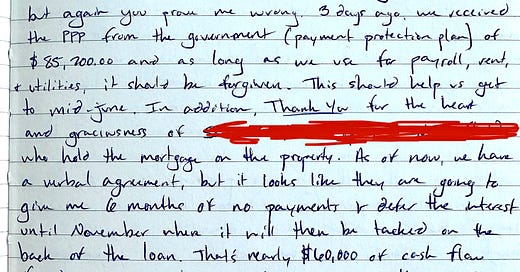 but again you prove me wrong. 3 days ago, we received
the PPP from the government (payment protection plan) of
$85,200.00 and as long as we use for payroll, rent,
+ utilities, it should be forgiven. This should help us get
to mid-june. In addition, Thank You for the heart
and graciousness of
who hold the mortgage on the property. As of now, we have
a verbal agreement, but it looks like they are going to
give me 6 months of no payments & defer the interest
until November when it will then be tacked on the
back of the loan. That's nearly $160,000 of cash flow